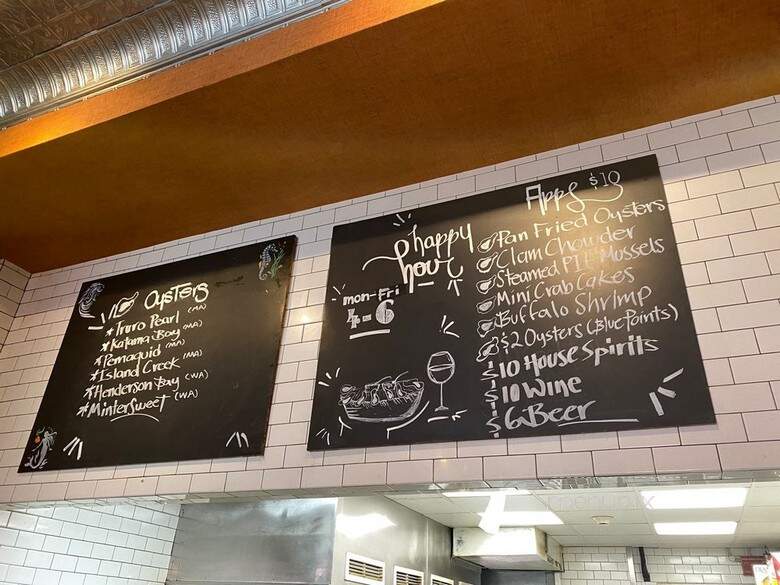 Oysters
*Truro Pearl (MA)
*Katama Bay (MA)
*Pemaquid (MA)
*Island Creek (MA)
*Henderson Bay (WA)
*Minter Sweet (WA)
happy
hour
mon-Fri
4-6
Apps $10
Pan Fried Oysters
Clam Chowder
Steamed PEI Mussels
Mini Crab Cakes
Buffalo Shrimp
$2 Oysters (Blue Points)
$10 House Spirits
$10 Wine
$6 Beer